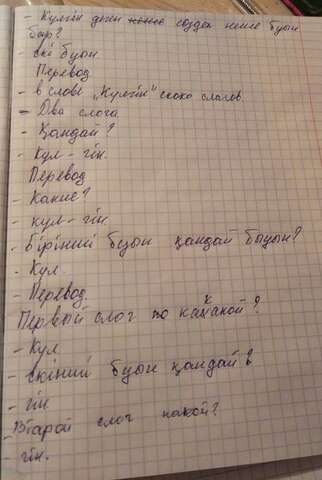 - Күлгін деген создек неше буын
бар?
- екі буын
Перевод
- в слове "Кулгін" скоко слагов.
- Два слога
- Қандай?
- Кул - гін.
Перевод
- Какие?
- кул - гін
- Бірінші буын қандай быуын?
- Кул.
- Перевод.
Первый слог то какой?
- Кул
- екінші буын қандай?
- гін
- Втарой слог какой?
- гін.